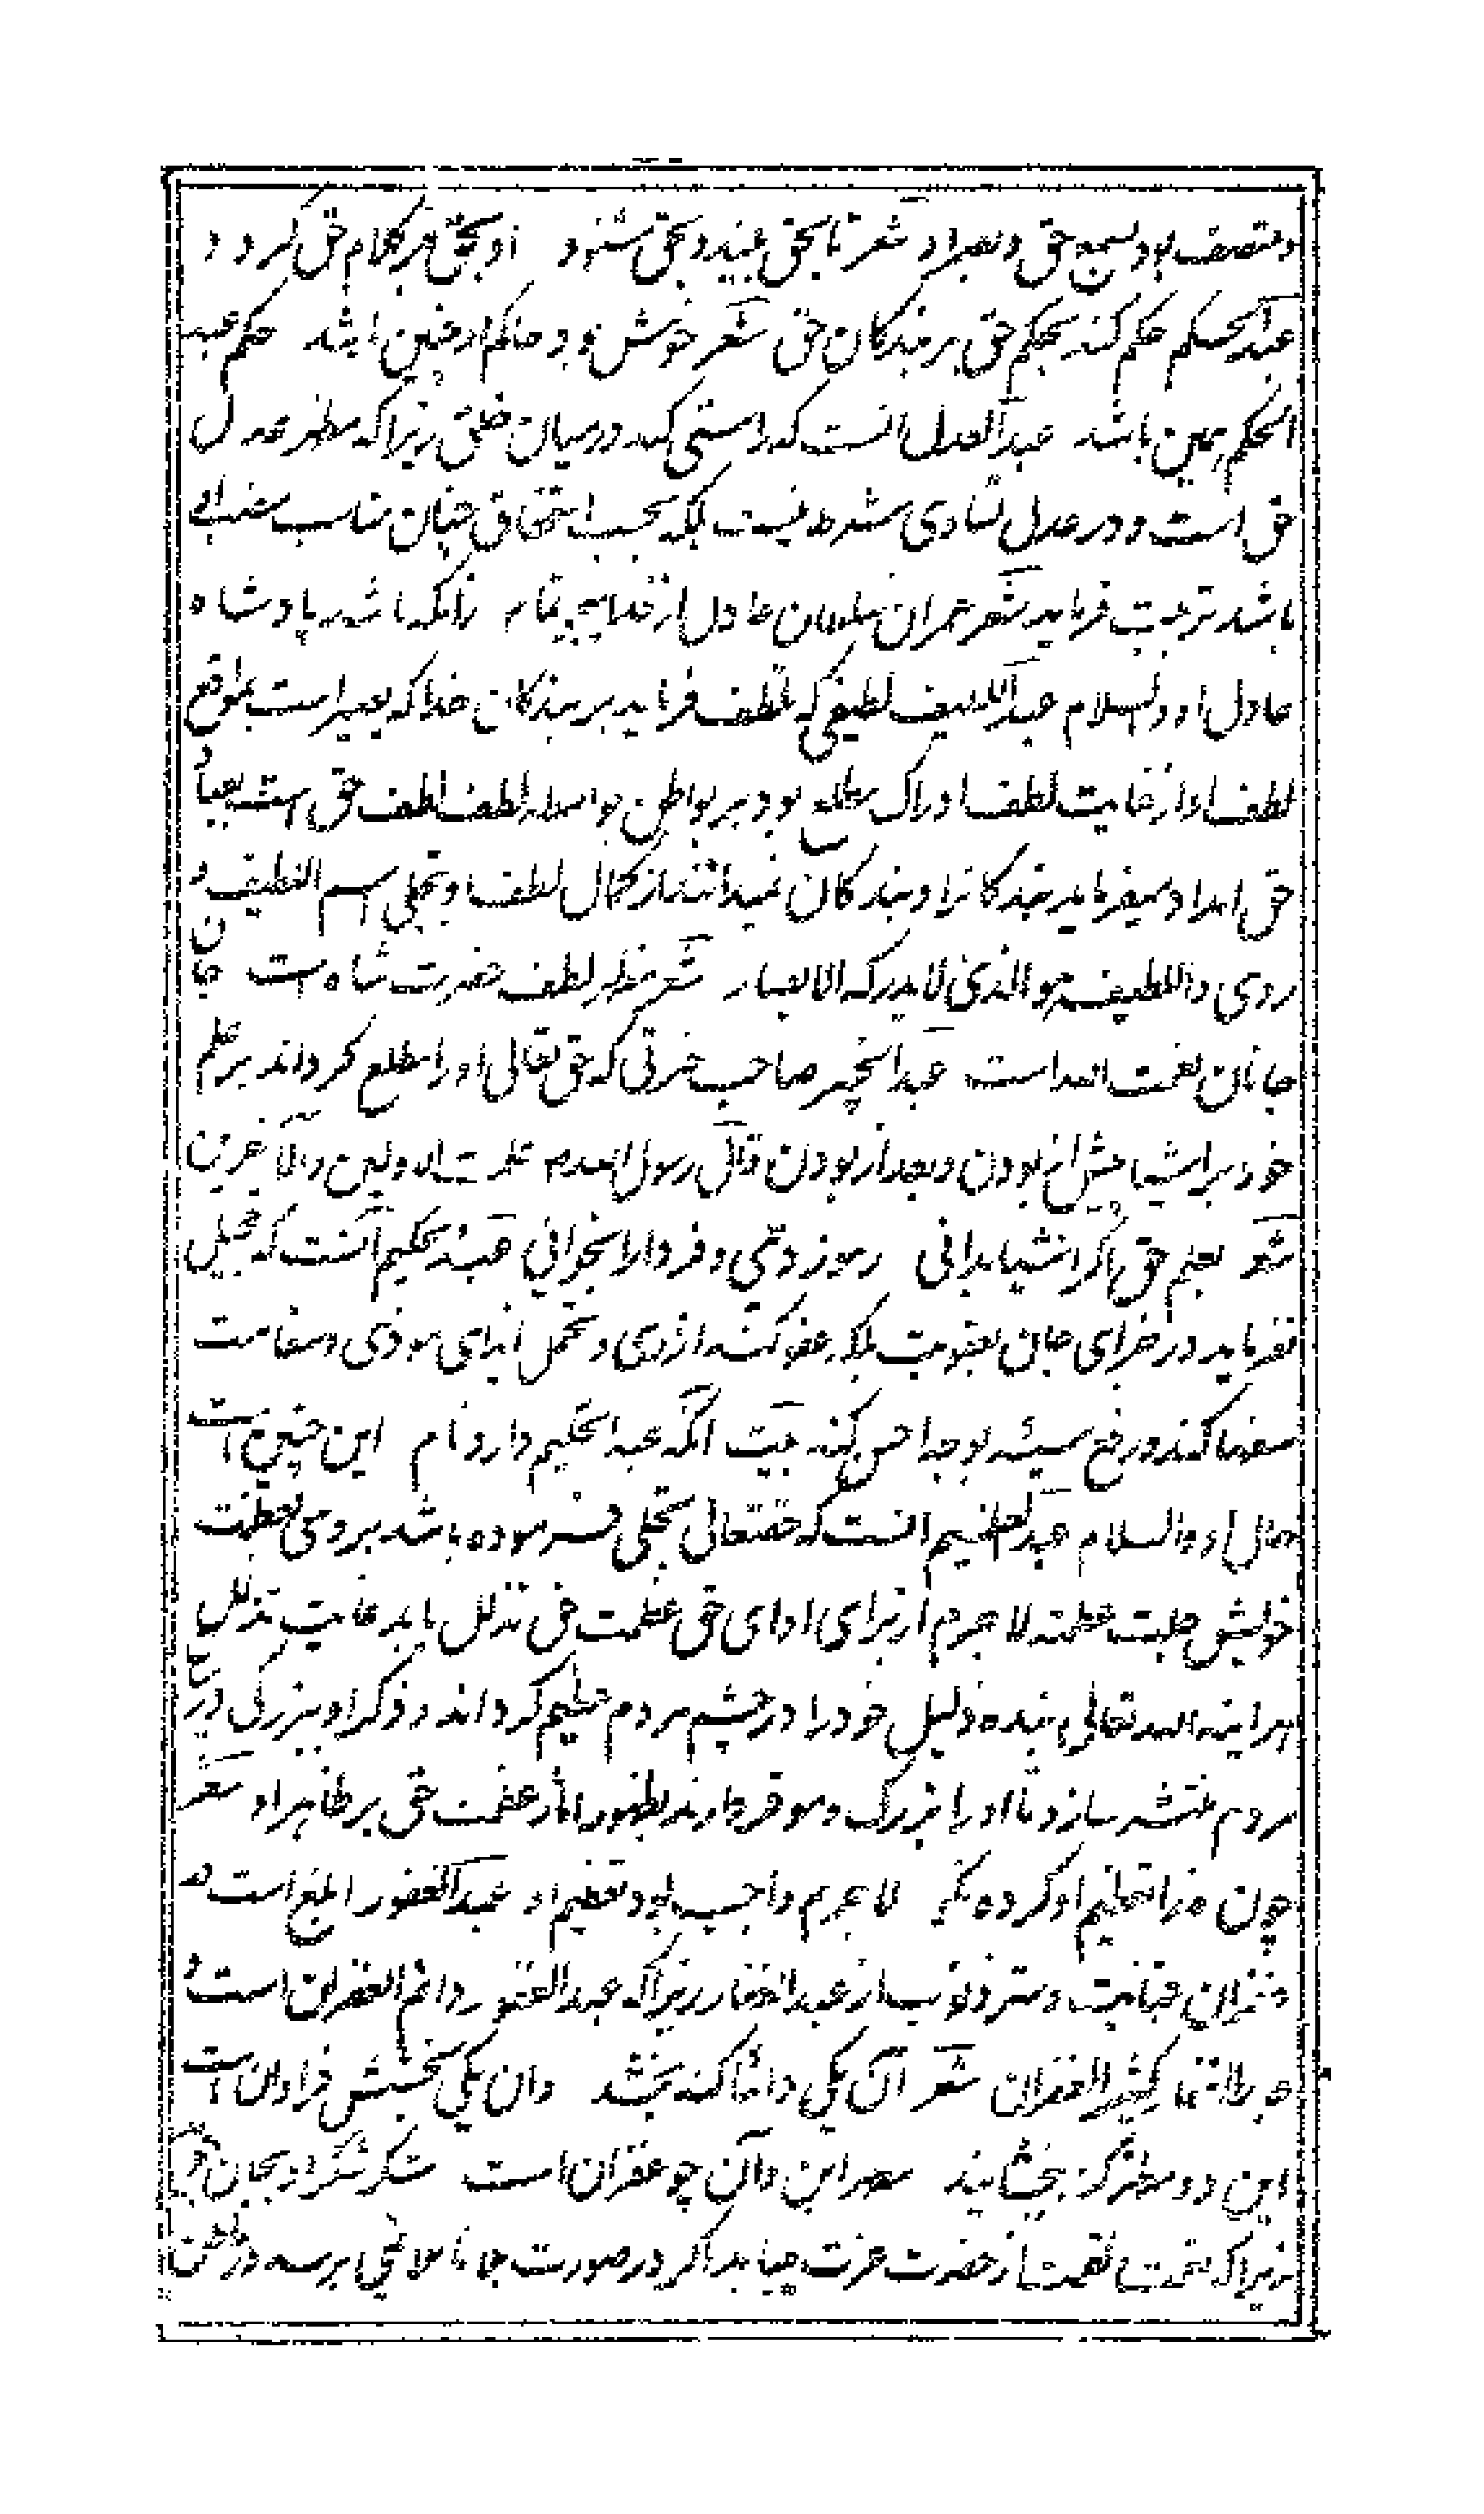 و متصف بود بسمع حق و بصر او شعر تا بحق بیند و بحق شنود او بحق هر کلام حق گردد
عبد الحکم حکم کند بحکم حق بر بندگان حق شعر خوش بود حاکم ار چنین باشد حکم عبد
الحکم همین باشد عبد العدل آنست که راستی کند در میان خلق زیرا که مظهر عدل
حق است و در عدل تساوی شرط نیست بلکه بحسب استحقاق چنان مناسب
باشد تربیت فرماید شعر عمران سلطان عادل از خدا میجو تمام زانکه باشد پادشاه
عادل او والسلام عبد اللطیف لطیفی که تلطف فرماید بر بندگان خدا که بصیر است بمواقع
لطف او از غایت لطف ادراک مطلع بود بر بواطن بواسطه لطف لطف حق است بعباد
حق امداد میفرماید بندگانرا و بندگان نمیدانند از کمال لطف و تجلی اسم اللطیف
روی و اللطیف هو الذی لا یدرکه الابصار شعر مظهر لطف حضرت شاه است جان
جانان نعمت الله است عبد الخبیر صاحب خبرتی که حق تعالی او را مطلع گرداند بر علم
خود بر اشیا پیش از بودن و بعد از بودن قال رسول الله م علمت الاولین والآخرین
شعر بعلم حق اگر اشیا بدانی رموز دی و فردا را بخوانی عبد الحکیم آنست که تعجیل
نفرماید در جزای جانی بعقوبت بلکه عفو کند از وی و تحمل ایذای موذی و سفاهت
سفها کند و رفع سیئه بوجه احسن کند بیت آنکه عبد الحکیم دارد نام این چنین است
حال او والسلام عبد العظیم آنست که حقتعالی تجلی فرموده باشد بروی بعظمت
خویش جلت عظمته لاجرم از برای ادای حق عظمت حق تذلل یابد غایت تذلل
هر اینه الله تعالی بنده ذلیل خود را در چشم مردم عظیم گرداند و ذکر او ببزرگی در
مردم منتشر سازد تا او را بزرگ و موقر دارند بظهور آثار عظمت حق بر ظاهر او شعر
چون خدا تعظیم او کرده نکو لاجرم واجب بود تعظیم او عبد الغفور ابلغ است در
غفران جنایت و ستر ذنوب از عبد الغفار زیرا که عبد الغفور دائم الغفران است و
عبد الغفار کثیر الغفران شعر آن یکی دائما گنه بخشد وان یکی بخشش فراوان است
این دو مظهر گنه بخشایند مصدر این و آن چو غفران است
زیرا که نعمت از حضرت عزت میابد اگر در صورت برسد